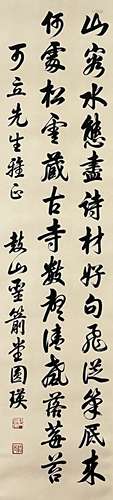 山容水態盡詩材好句飛從筆底來
何處松雲藏古寺數聲清磬落莓苔
可立先生雅正 鼓山靈箭堂圓瑛